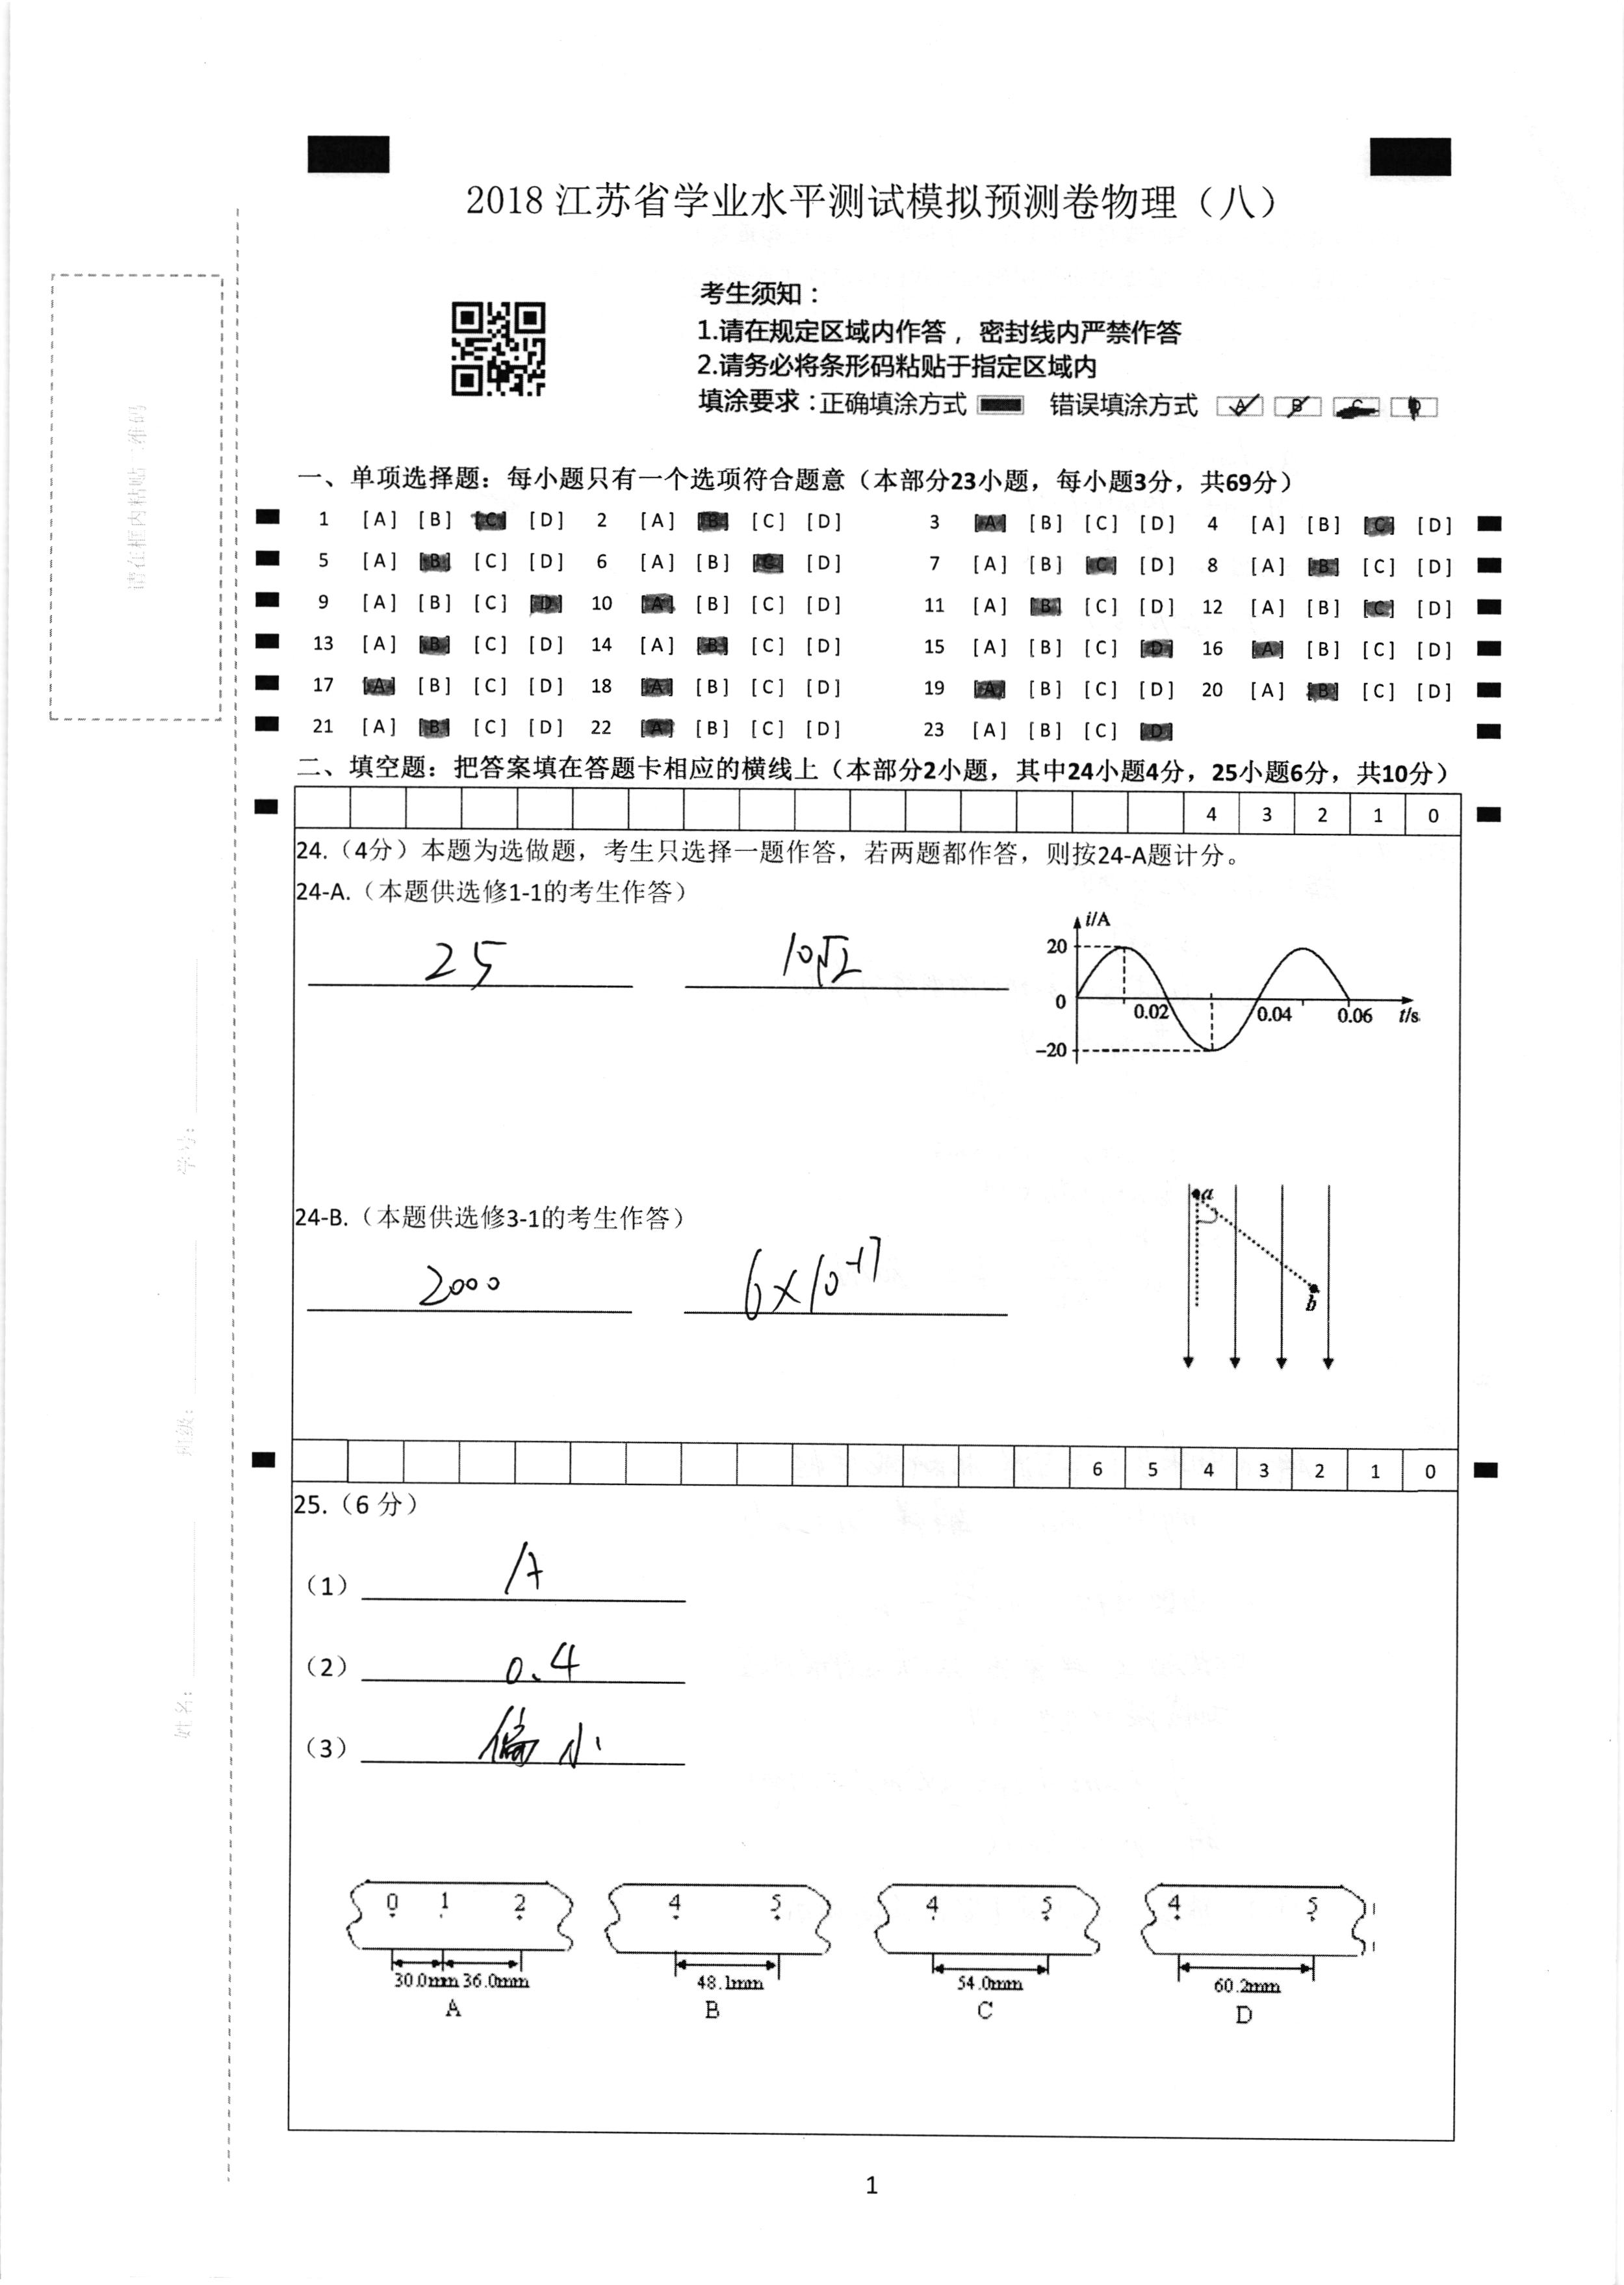 2018 江苏省学业水平测试模拟预测卷物理（八）
考生须知：
1.请在规定区域内作答，密封线内严禁作答
2.请务必将条形码粘贴于指定区域内
填涂要求：正确填涂方式 错误填涂方式 A B C D
请在框内粘贴二维码
学号：
班级：
姓名：
一、单项选择题：每小题只有一个选项符合题意（本部分23小题，每小题3分，共69分）
1 [A] [B] [C] [D] 2 [A] [B] [C] [D] 3 [A] [B] [C] [D] 4 [A] [B] [C] [D]
5 [A] [B] [C] [D] 6 [A] [B] [C] [D] 7 [A] [B] [C] [D] 8 [A] [B] [C] [D]
9 [A] [B] [C] [D] 10 [A] [B] [C] [D] 11 [A] [B] [C] [D] 12 [A] [B] [C] [D]
13 [A] [B] [C] [D] 14 [A] [B] [C] [D] 15 [A] [B] [C] [D] 16 [A] [B] [C] [D]
17 [A] [B] [C] [D] 18 [A] [B] [C] [D] 19 [A] [B] [C] [D] 20 [A] [B] [C] [D]
21 [A] [B] [C] [D] 22 [A] [B] [C] [D] 23 [A] [B] [C] [D]
二、填空题：把答案填在答题卡相应的横线上（本部分2小题，其中24小题4分，25小题6分，共10分）
4 3 2 1 0
24.（4分）本题为选做题，考生只选择一题作答，若两题都作答，则按24-A题计分。
24-A.（本题供选修1-1的考生作答）
25 10√2
i/A
20
0 0.02 0.04 0.06 t/s
-20
24-B.（本题供选修3-1的考生作答）
2000 6×10⁻¹⁷
a
b
6 5 4 3 2 1 0
25.（6 分）
（1） A
（2） 0.4
（3） 偏小
0 1 2 4 5 4 5 4 5
30.0mm 36.0mm 48.1mm 54.0mm 60.2mm
A B C D
1